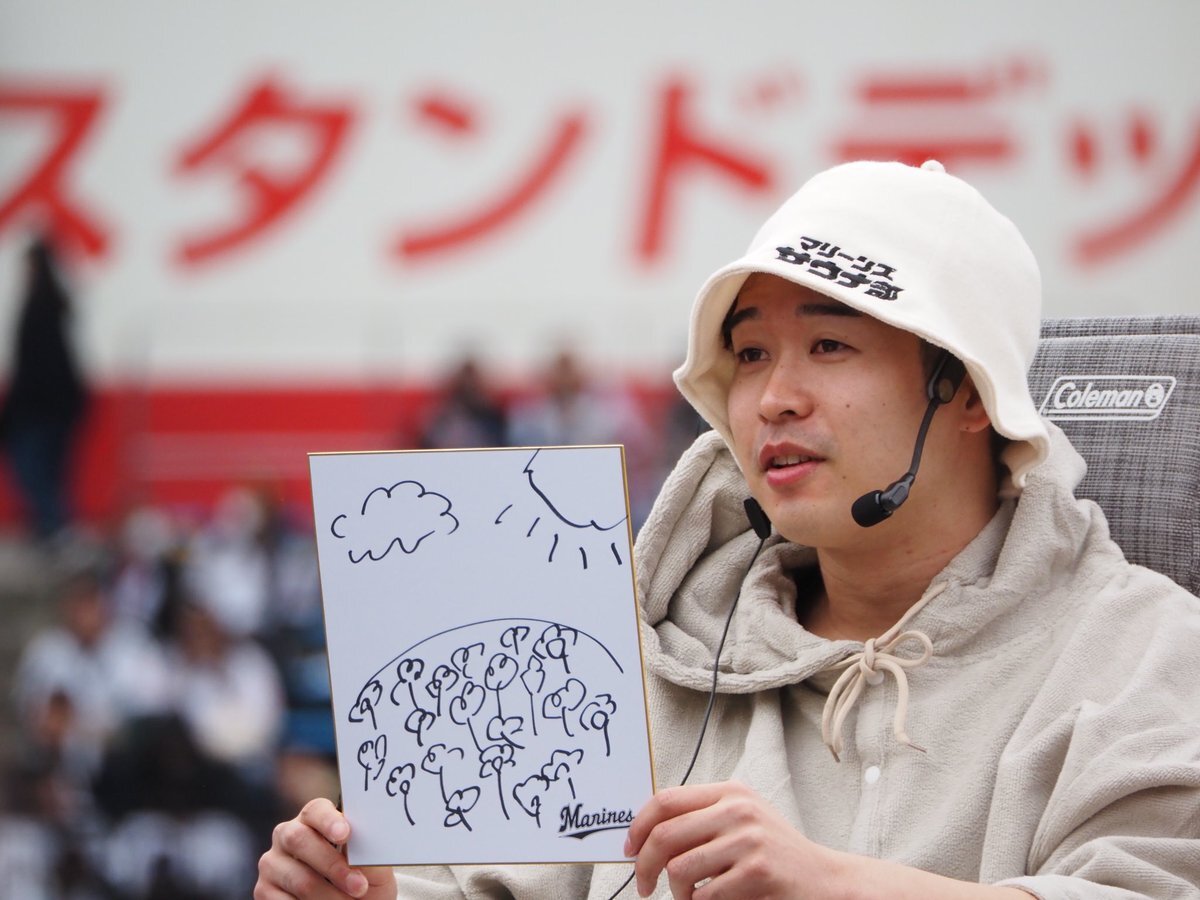 スタンドデッ
マリーンズ
サウナ部
Coleman
Marines